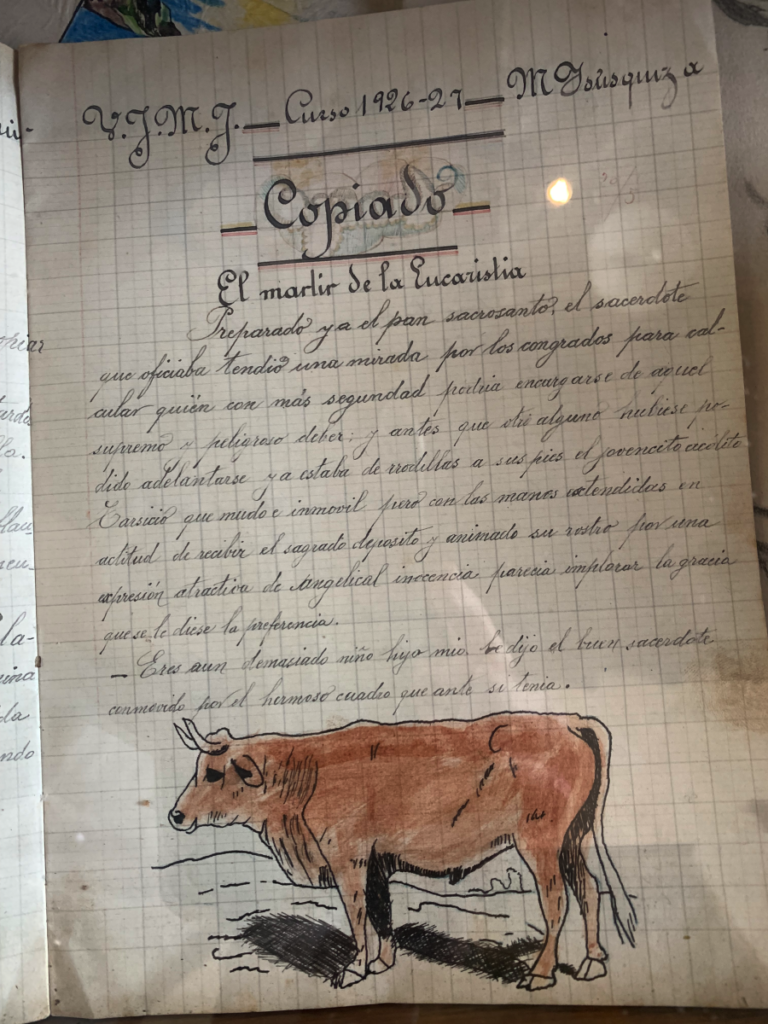 V.J.M.J. — Curso 1926-27 — M Isusquiza
— Copiado —
El martir de la Eucaristia
Preparado ya el pan sacrosanto, el sacerdote
que oficiaba tendió una mirada por los congrados para cal-
cular quién con más segundad podria encargarse de aquel
supremo y peligroso deber; y antes que otro alguno hubiese po-
dido adelantarse ya estaba de rrodillas a sus pies el jovencito acólito
Tarsicio que mudo e inmovil pero con las manos extendidas en
actitud de recibir el sagrado deposito y animado su rostro por una
expresión atractiva de Angelical inocencia parecia implorar la gracia
que se le diese la preferencia.
— Eres aun demasiado niño hijo mio, le dijo el buen sacerdote
conmovido por el hermoso cuadro que ante si tenia.
phiar
lla.
la-
da
ndo